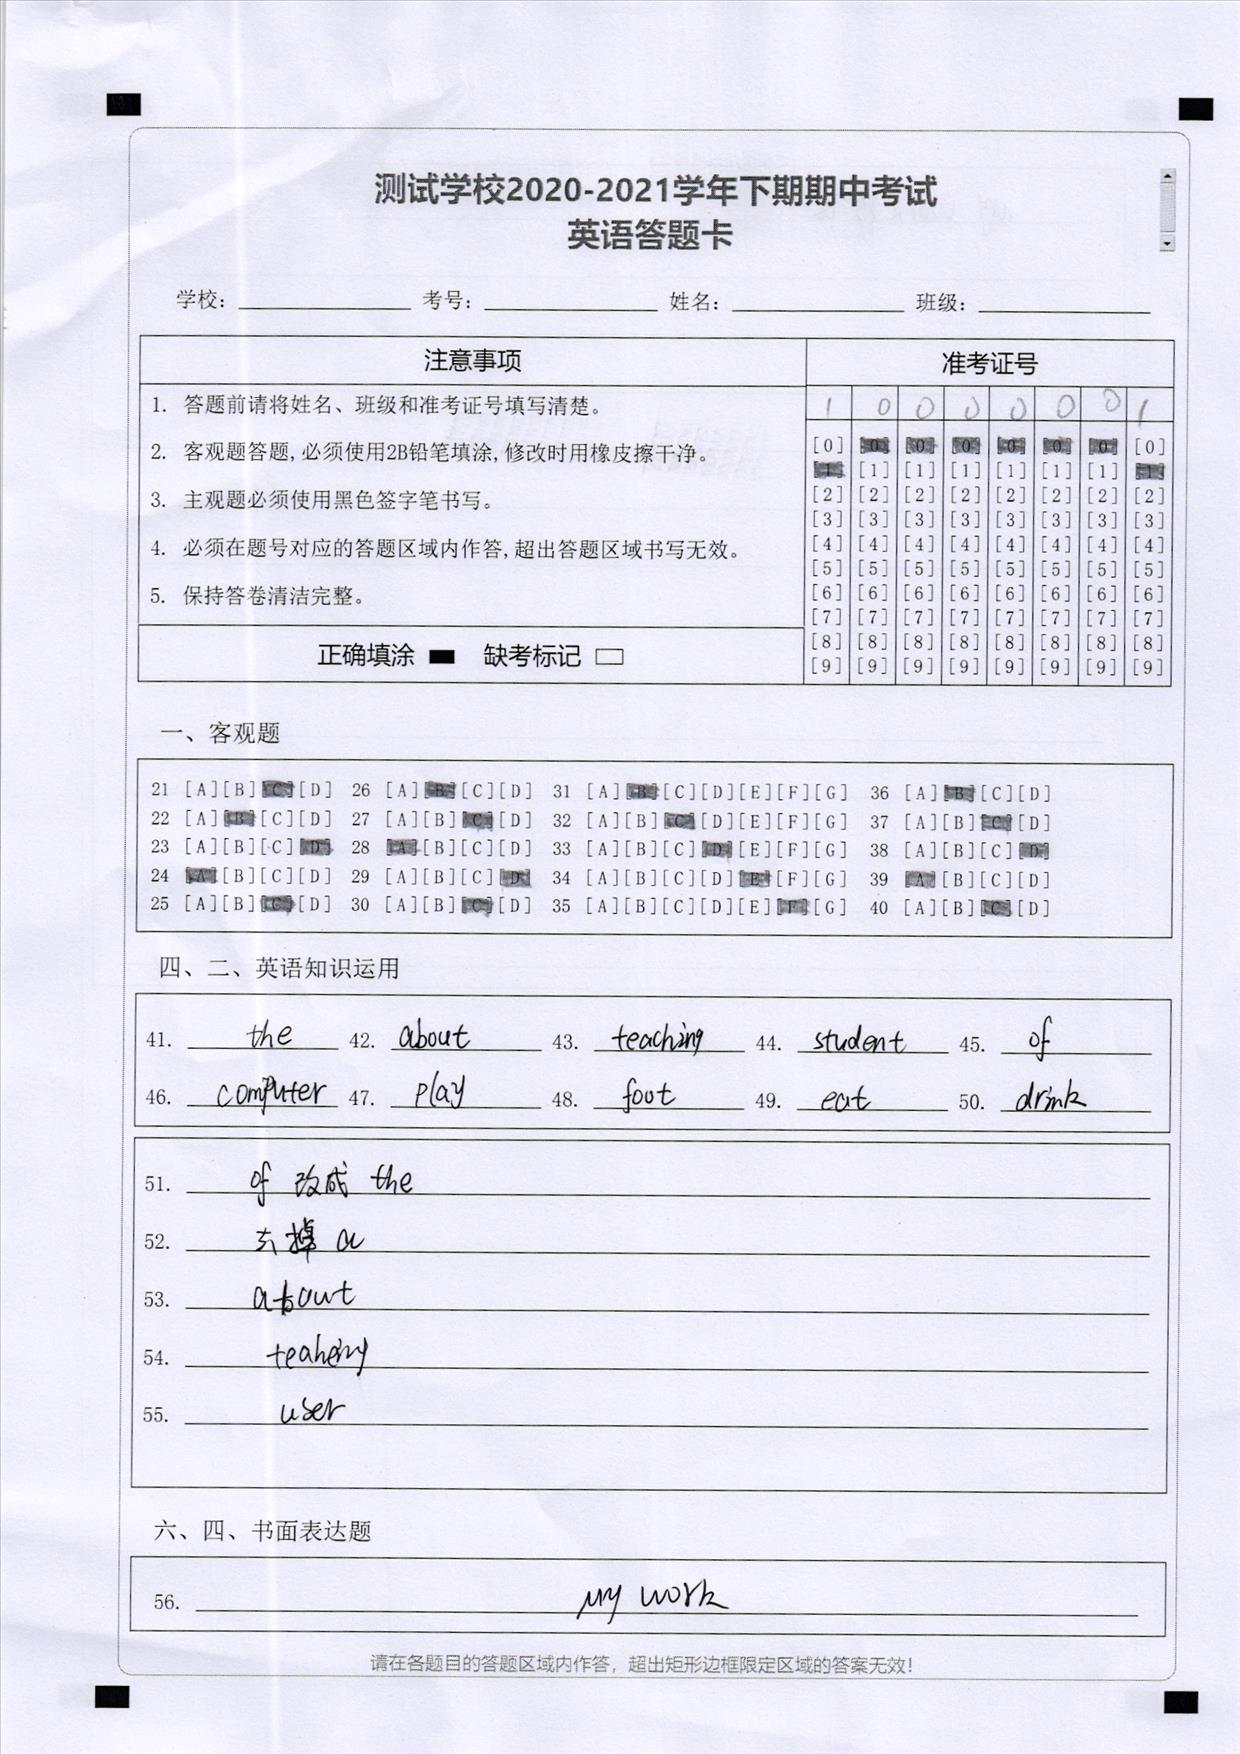 测试学校2020-2021学年下期期中考试
英语答题卡
学校: 考号: 姓名: 班级:
注意事项 准考证号
1. 答题前请将姓名、班级和准考证号填写清楚。
2. 客观题答题,必须使用2B铅笔填涂,修改时用橡皮擦干净。
3. 主观题必须使用黑色签字笔书写。
4. 必须在题号对应的答题区域内作答,超出答题区域书写无效。
5. 保持答卷清洁完整。
正确填涂 缺考标记
1 0 0 0 0 0 0 1
[0] [0] [0] [0] [0] [0] [0] [0]
[1] [1] [1] [1] [1] [1] [1] [1]
[2] [2] [2] [2] [2] [2] [2] [2]
[3] [3] [3] [3] [3] [3] [3] [3]
[4] [4] [4] [4] [4] [4] [4] [4]
[5] [5] [5] [5] [5] [5] [5] [5]
[6] [6] [6] [6] [6] [6] [6] [6]
[7] [7] [7] [7] [7] [7] [7] [7]
[8] [8] [8] [8] [8] [8] [8] [8]
[9] [9] [9] [9] [9] [9] [9] [9]
一、客观题
21 [A][B][C][D] 26 [A][B][C][D] 31 [A][B][C][D][E][F][G] 36 [A][B][C][D]
22 [A][B][C][D] 27 [A][B][C][D] 32 [A][B][C][D][E][F][G] 37 [A][B][C][D]
23 [A][B][C][D] 28 [A][B][C][D] 33 [A][B][C][D][E][F][G] 38 [A][B][C][D]
24 [A][B][C][D] 29 [A][B][C][D] 34 [A][B][C][D][E][F][G] 39 [A][B][C][D]
25 [A][B][C][D] 30 [A][B][C][D] 35 [A][B][C][D][E][F][G] 40 [A][B][C][D]
四、二、英语知识运用
41. the 42. about 43. teaching 44. student 45. of
46. computer 47. play 48. foot 49. eat 50. drink
51. of 改成 the
52. 去掉 a
53. about
54. teaheiny
55. user
六、四、书面表达题
56. my work
请在各题目的答题区域内作答，超出矩形边框限定区域的答案无效!